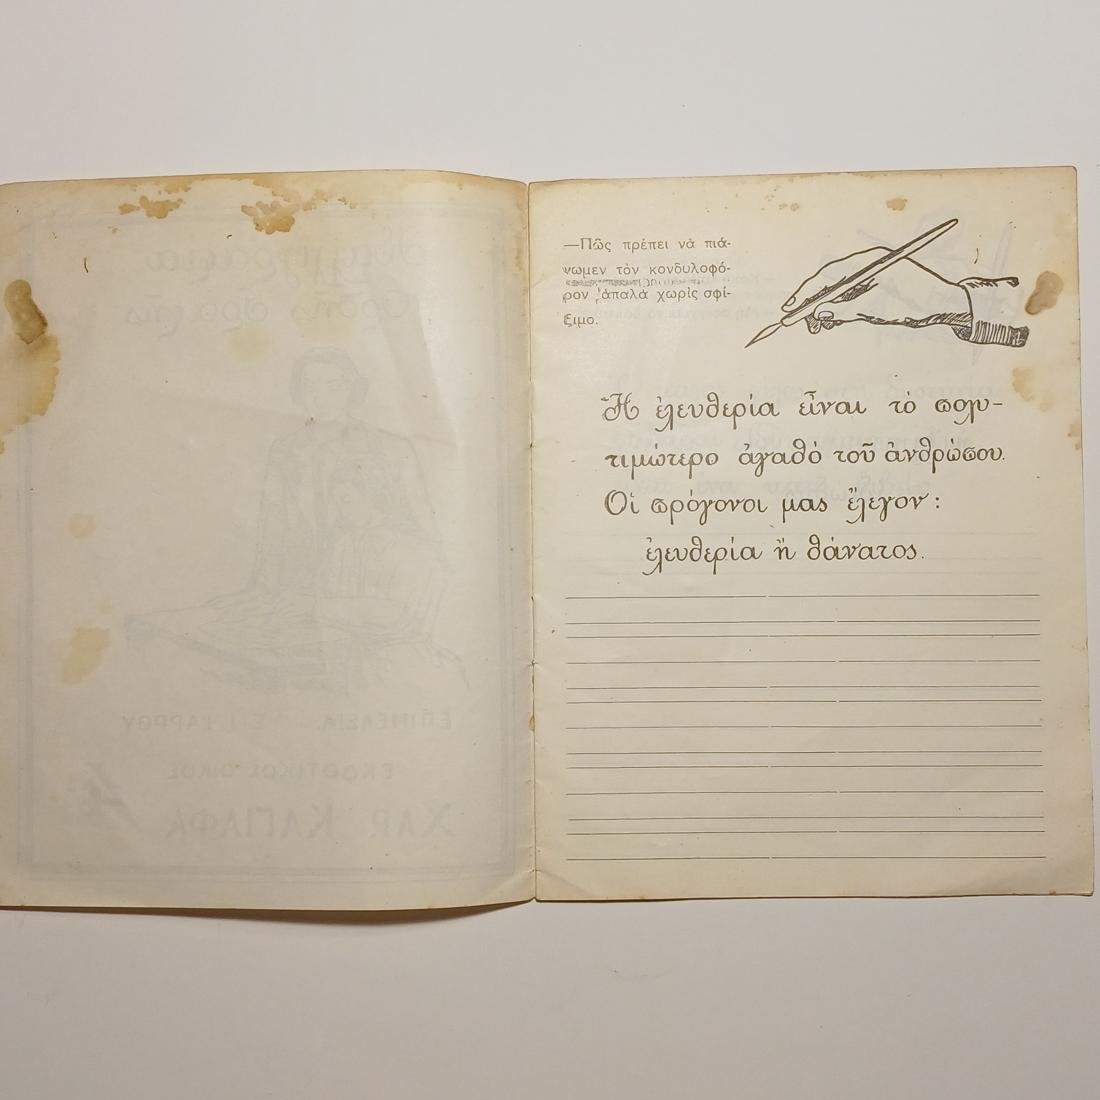 —Πῶς πρέπει νὰ πιά-
νωμεν τὸν κονδυλοφό-
ρον ἁπαλά χωρὶς σφί-
ξιμο.
Ἡ ἐλευθερία εἶναι τὸ πολυ-
τιμώτερο ἀγαθό τοῦ ἀνθρώπου.
Οἱ πρόγονοι μας ἔλεγον:
ἐλευθερία ἢ θάνατος.
ΕΚΔΟΤΙΚΟΣ ΟΙΚΟΣ
ΧΑΡ. ΚΑΓΙΑΦΑ